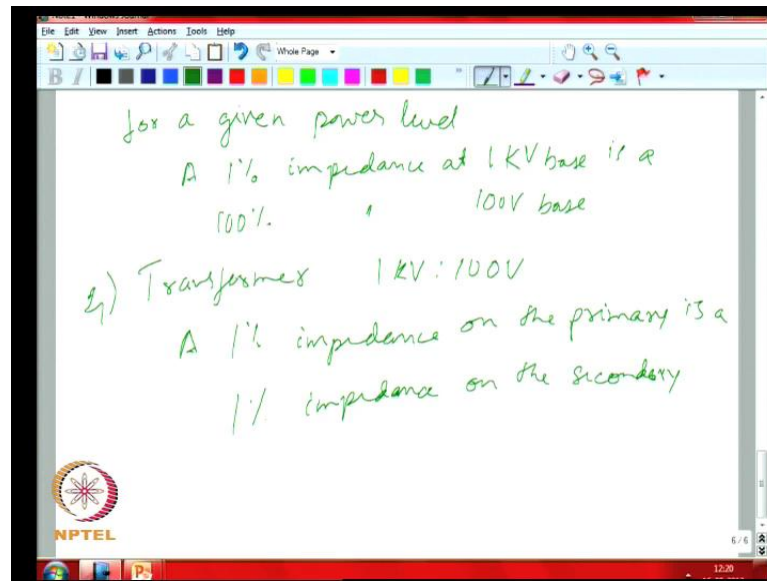 File Edit View Insert Actions Tools Help
Whole Page
B I
for a given power level
A 1% impedance at 1 KV base is a
100% " 100V base
Transformer 1 KV : 100V
A 1% impedance on the primary is a
1% impedance on the secondary
NPTEL
6 / 6
12:20